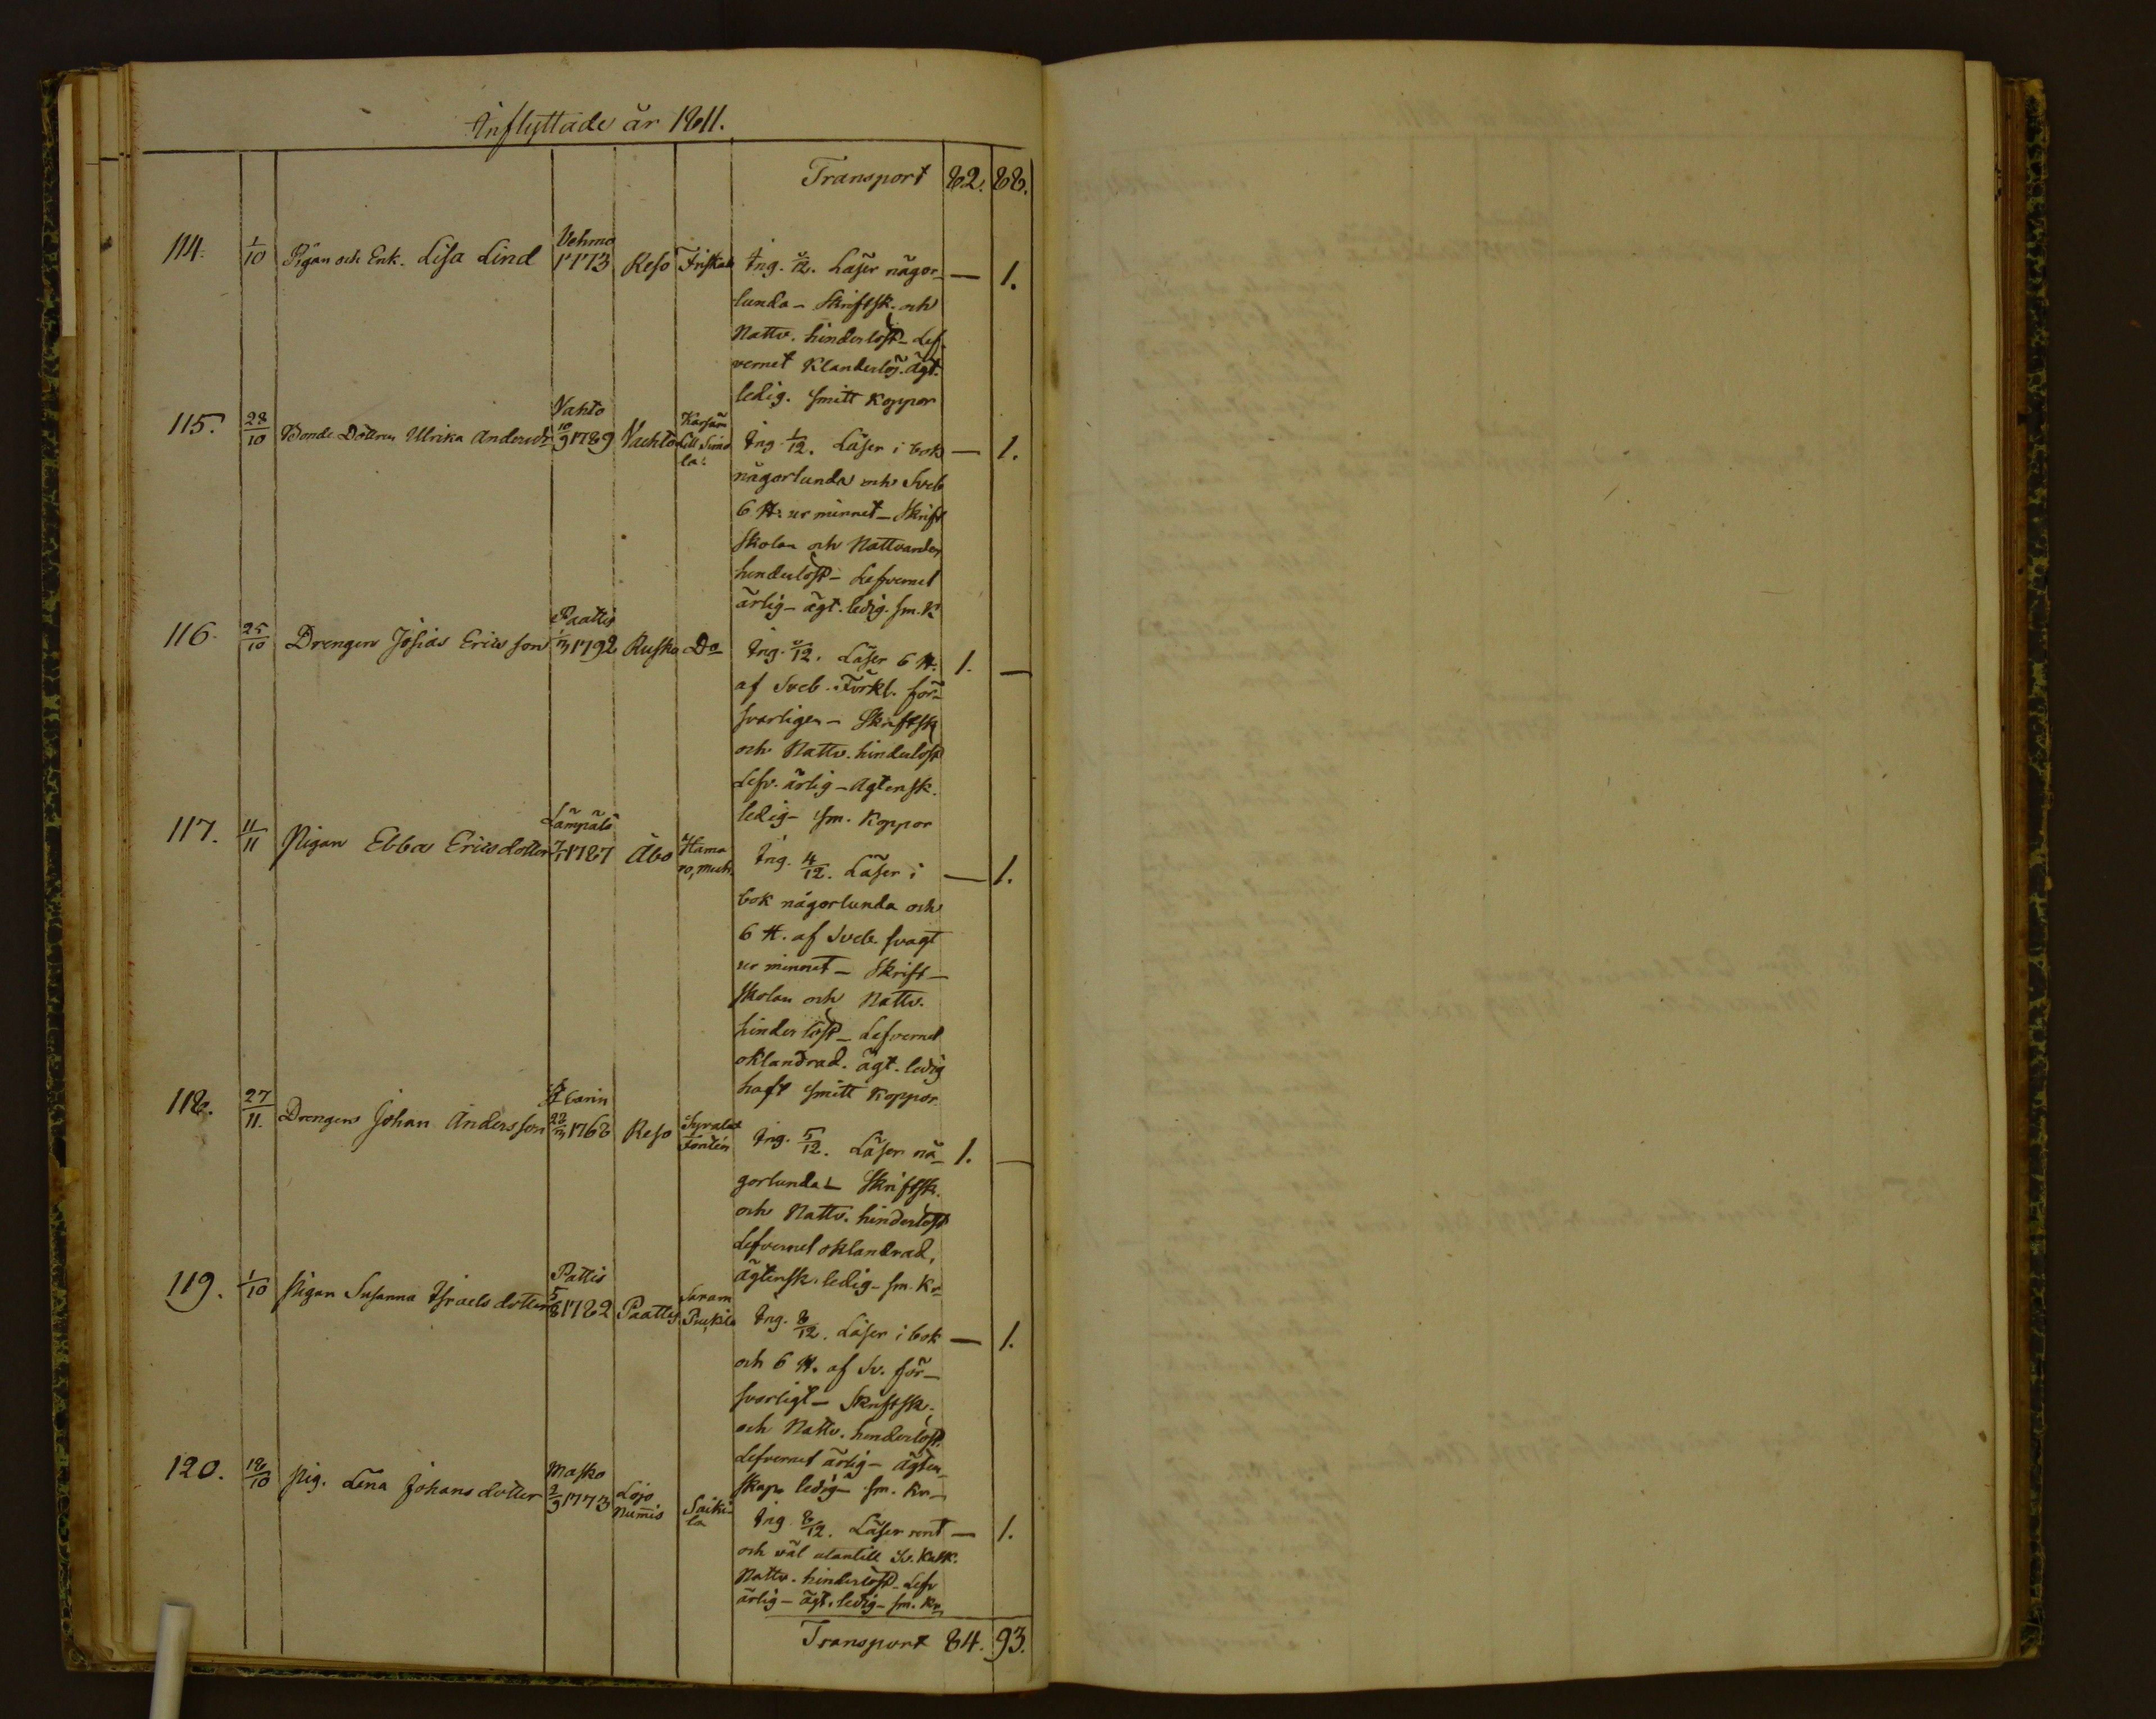 Inflyttade år 1811.
Transport 82. 88.
114. 1/10 Pigan och Enk. Lisa Lind Vehmo 1773 Reso Friskala Ing. 2/12. Läser någor- — 1.
lunda - Skriftsk. och
Nattv. hinderlöst - Lef-
vernet Klanderlös. Ägt.
ledig. smitt Koppor
115. 28/10 Bonde Dottren Ulrika Andersdr Vahto 10/9 1789 Vachto Ing. 1/12. Läser i bok — 1.
någorlunda och Sveb
6 H: ur minnet - Skrift
skolan och Nattvarden
hinderlöst - Lefvernet
ärlig - ägt. ledig. sm. K
116. 25/10 Drengen Josias Ericsson Paattis 1792 Rusko Do Ing. 2/12. Läser 6 H. 1. —
af Sveb. Förkl. för-
svarligen - Skriftsk
och Nattv. hinderlöst
Lefv. ärlig - Ägtensk.
ledig - sm. Koppor
117. 11/11 Pigan Ebba Ericsdotter Lämpälä 1787 Åbo Hama ro, Ing. 4/12. Läser i — 1.
bok någorlunda och
6 H. af Sveb. svagt
ur minnet - Skrift-
skolan och Nattv.
hinderlöst - Lefvernet
oklandrad. ägt. ledig
haft smitt Koppor
118. 27/11. Drengen Johan Andersson 1768 Reso Ing. 5/12. Läser nå- 1. —
gorlunda - Skriftsk.
och Nattv. hinderlöst
Lefvernet oklandrad,
Ägtensk. ledig - sm. Kr
119. 1/10 Pigan Susanna Israelsdotter Pattis 5/8 1782 Paattis Ing. 8/12. Läser i bok — 1.
och 6 H. af Sv. för-
svarligt - Skriftsk.
och Nattv. hinderlöst.
Lefvernet ärlig - ägten-
skap ledig - sm. Kr-
120. 18/10 Pig. Lena Johansdotter Masko 2/9 1773 Lojo Numis Saiki- la Ing. 8/12. Läser rent — 1.
och väl utantill Sv. Katk.
Nattv. hinderlöst - Lefv
ärlig - ägt. ledig - sm. Kr
Transport 84. 93.